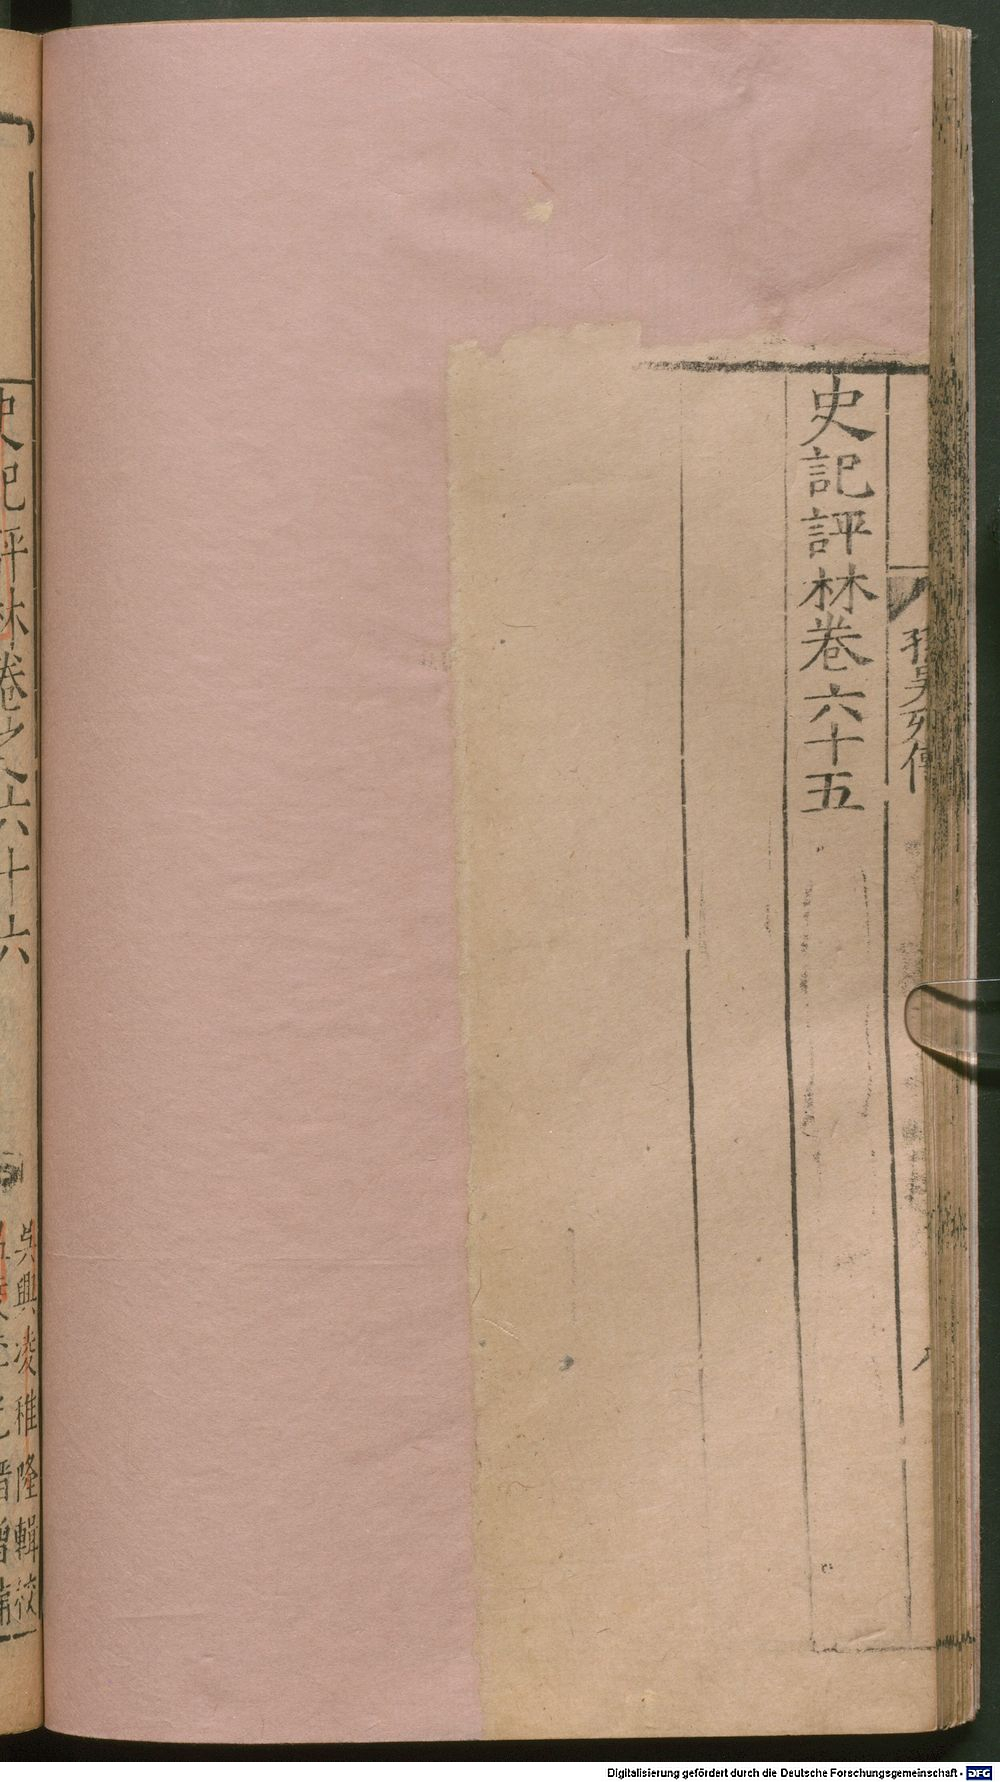 孫吳列傳
史記評林卷六十五
史記評林卷之六十六
吳興凌稚隆輯校
增補
Digitalisierung gefördert durch die Deutsche Forschungsgemeinschaft - DFG